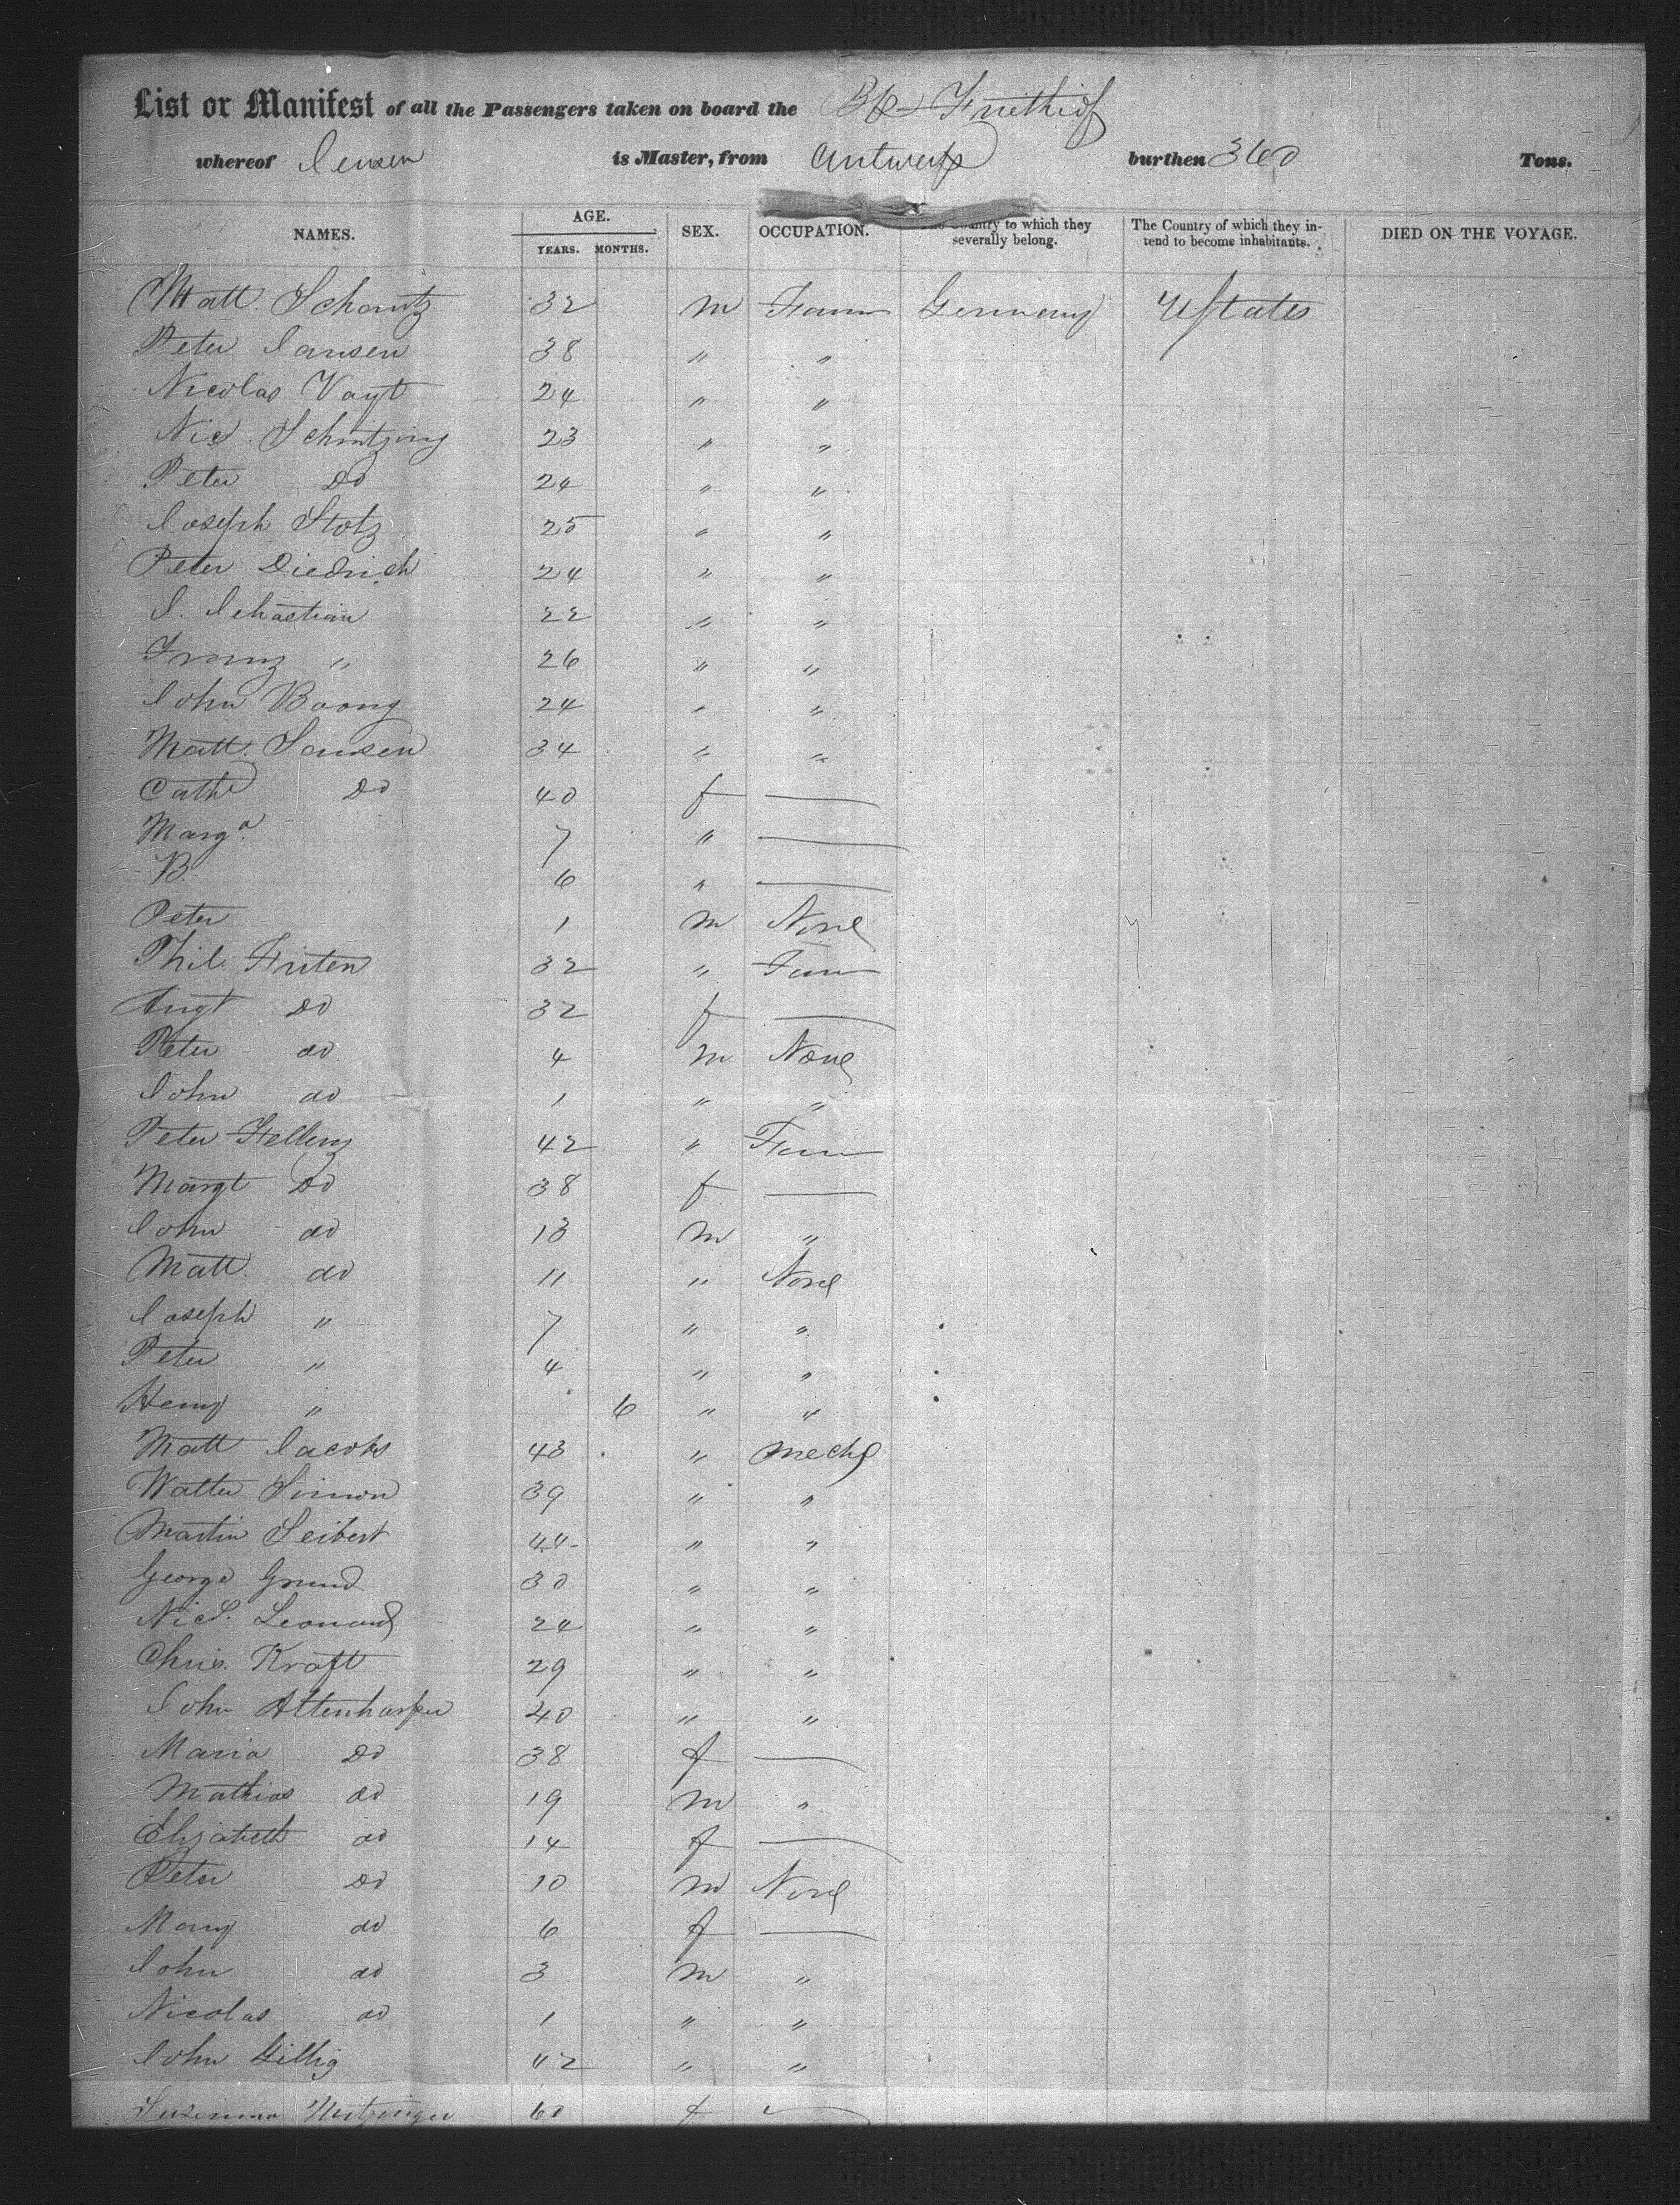 List or Manifest of all the Passengers taken on board the Bk Friethiof
whereof Jensen is Master, from Antwerp burthen 360 Tons.
NAMES. AGE. YEARS. MONTHS. SEX. OCCUPATION. Country to which they severally belong. The Country of which they intend to become inhabitants. DIED ON THE VOYAGE.
Matt. Schantz 32 m Farm Germany UStates
Peter Jansen 38 " "
Nicolas Voyt 24 " "
Nic. Schritzing 23 " "
Peter Do 24 " "
Joseph Stotz 25 " "
Peter Diedrich 24 " "
S. Sebastian 22 " "
Franz " 26 " "
John Boong 24 " "
Matt. Jansen 34 " "
Cathe Do 40 f —
Marga. 7 " —
B. 6 " —
Peter 1 m None
Phil. Fristen 32 " Farm
Augt Do 32 f —
Peter do 4 m None
John do 1 " "
Peter Hellenz 42 " Farm
Margt Do 38 f —
John do 13 m "
Matt. do 11 " None
Joseph " 7 " "
Peter " 4 " "
Henry " 6 " "
Matt Jacobs 43 " Mechc
Walter Simon 39 " "
Martin Seibert 44 " "
George Grund 30 " "
Nics. Leonard 24 " "
Chris. Kraft 29 " "
John Altenhofer 40 " "
Maria Do 38 f —
Mathias do 19 m "
Elizabeth do 14 f —
Peter Do 10 m None
Mary do 6 f —
John do 3 m "
Nicolas do 1 " "
John Gillig 42 " "
Susanna Mitzinger 60 f —